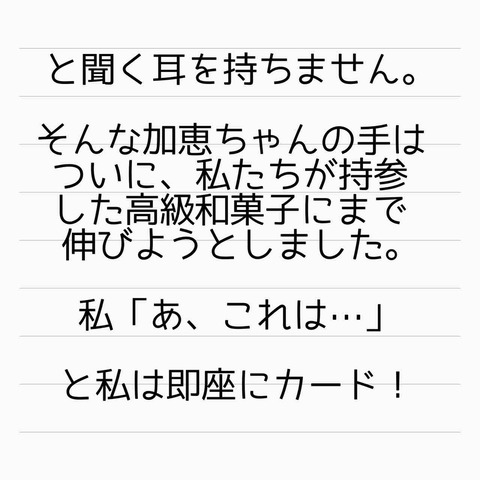 と聞く耳を持ちません。
そんな加恵ちゃんの手は
ついに、私たちが持参
した高級和菓子にまで
伸びようとしました。
私「あ、これは…」
と私は即座にカード！